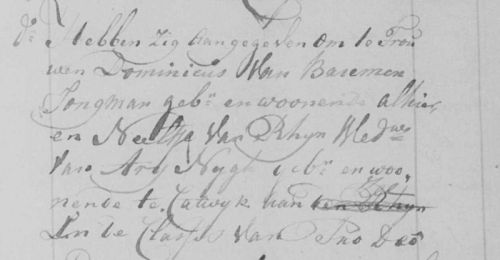 do Hebben zig aangegeven om te Trou
wen Dominicus Van Baremen
Jongman gebn en woonende alhier,
en Neeltje Van Rhyn Wedwe
Van Ary Nygh gebn en woo,
nende te Catwyk aan den Rhyn Zee
In de Classis van Pro Deo